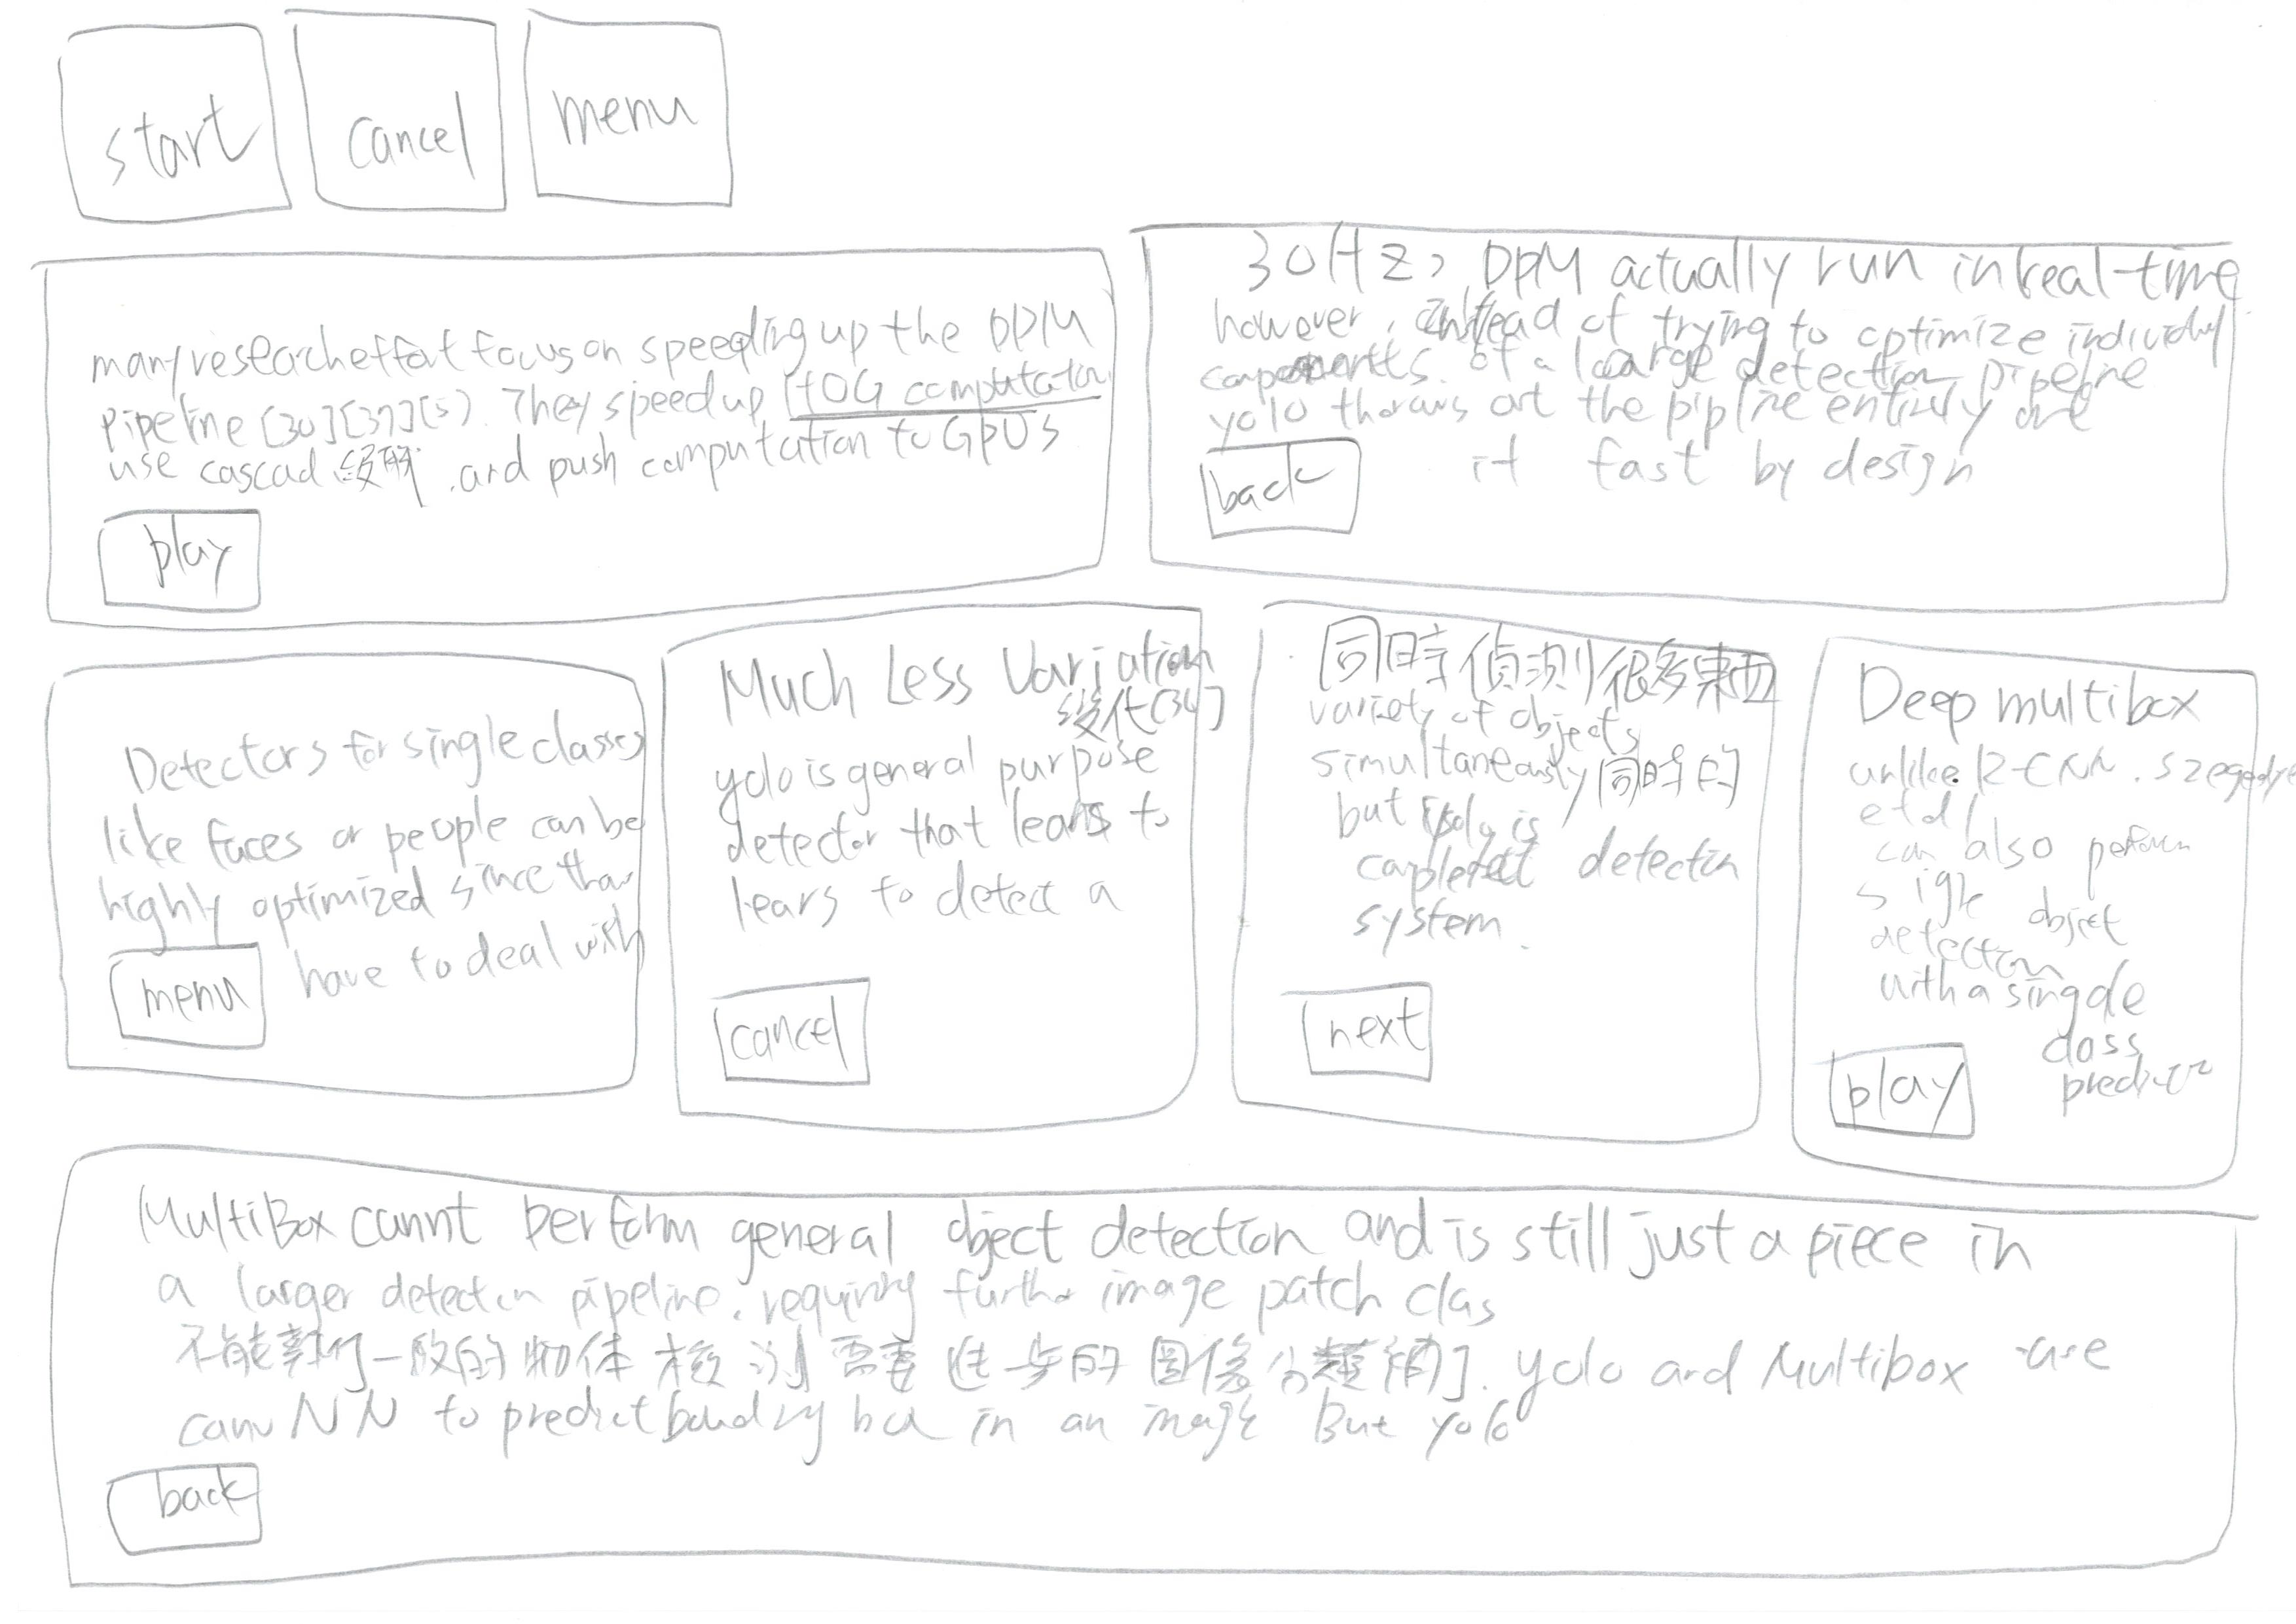 start
cancel
menu
many research effort focus on speeding up the DPM
pipeline [30][37][5]. They speed up HOG computation
use cascad .and push computation to GPUs
play
30Hz, DPM actually run in real-time
however, instead of trying to optimize individul
of a large detection pipeline
yolo throws out the pipline entirly
it fast by design
back
Detectors for single classes
like faces or people can be
highly optimized since they
have to deal with
menu
Much Less Variation
[34]
yolo is general purpose
detector that learns to
lears to detect a
cancel
同時偵測很多東西
variety of objects
simultaneously同時的
but yolo is
detection
system.
next
Deep multibox
unlike R-CNN. szegedy
can also perform
sigle object
detection
with a single
class
play
MultiBox cannt perform general object detection and is still just a piece in
a larger detection pipeline. requiring further image patch clas
不能執行一般的物体檢測需要進一步的圖像分類 yolo and Multibox use
NN to predict in an image But yolo
back